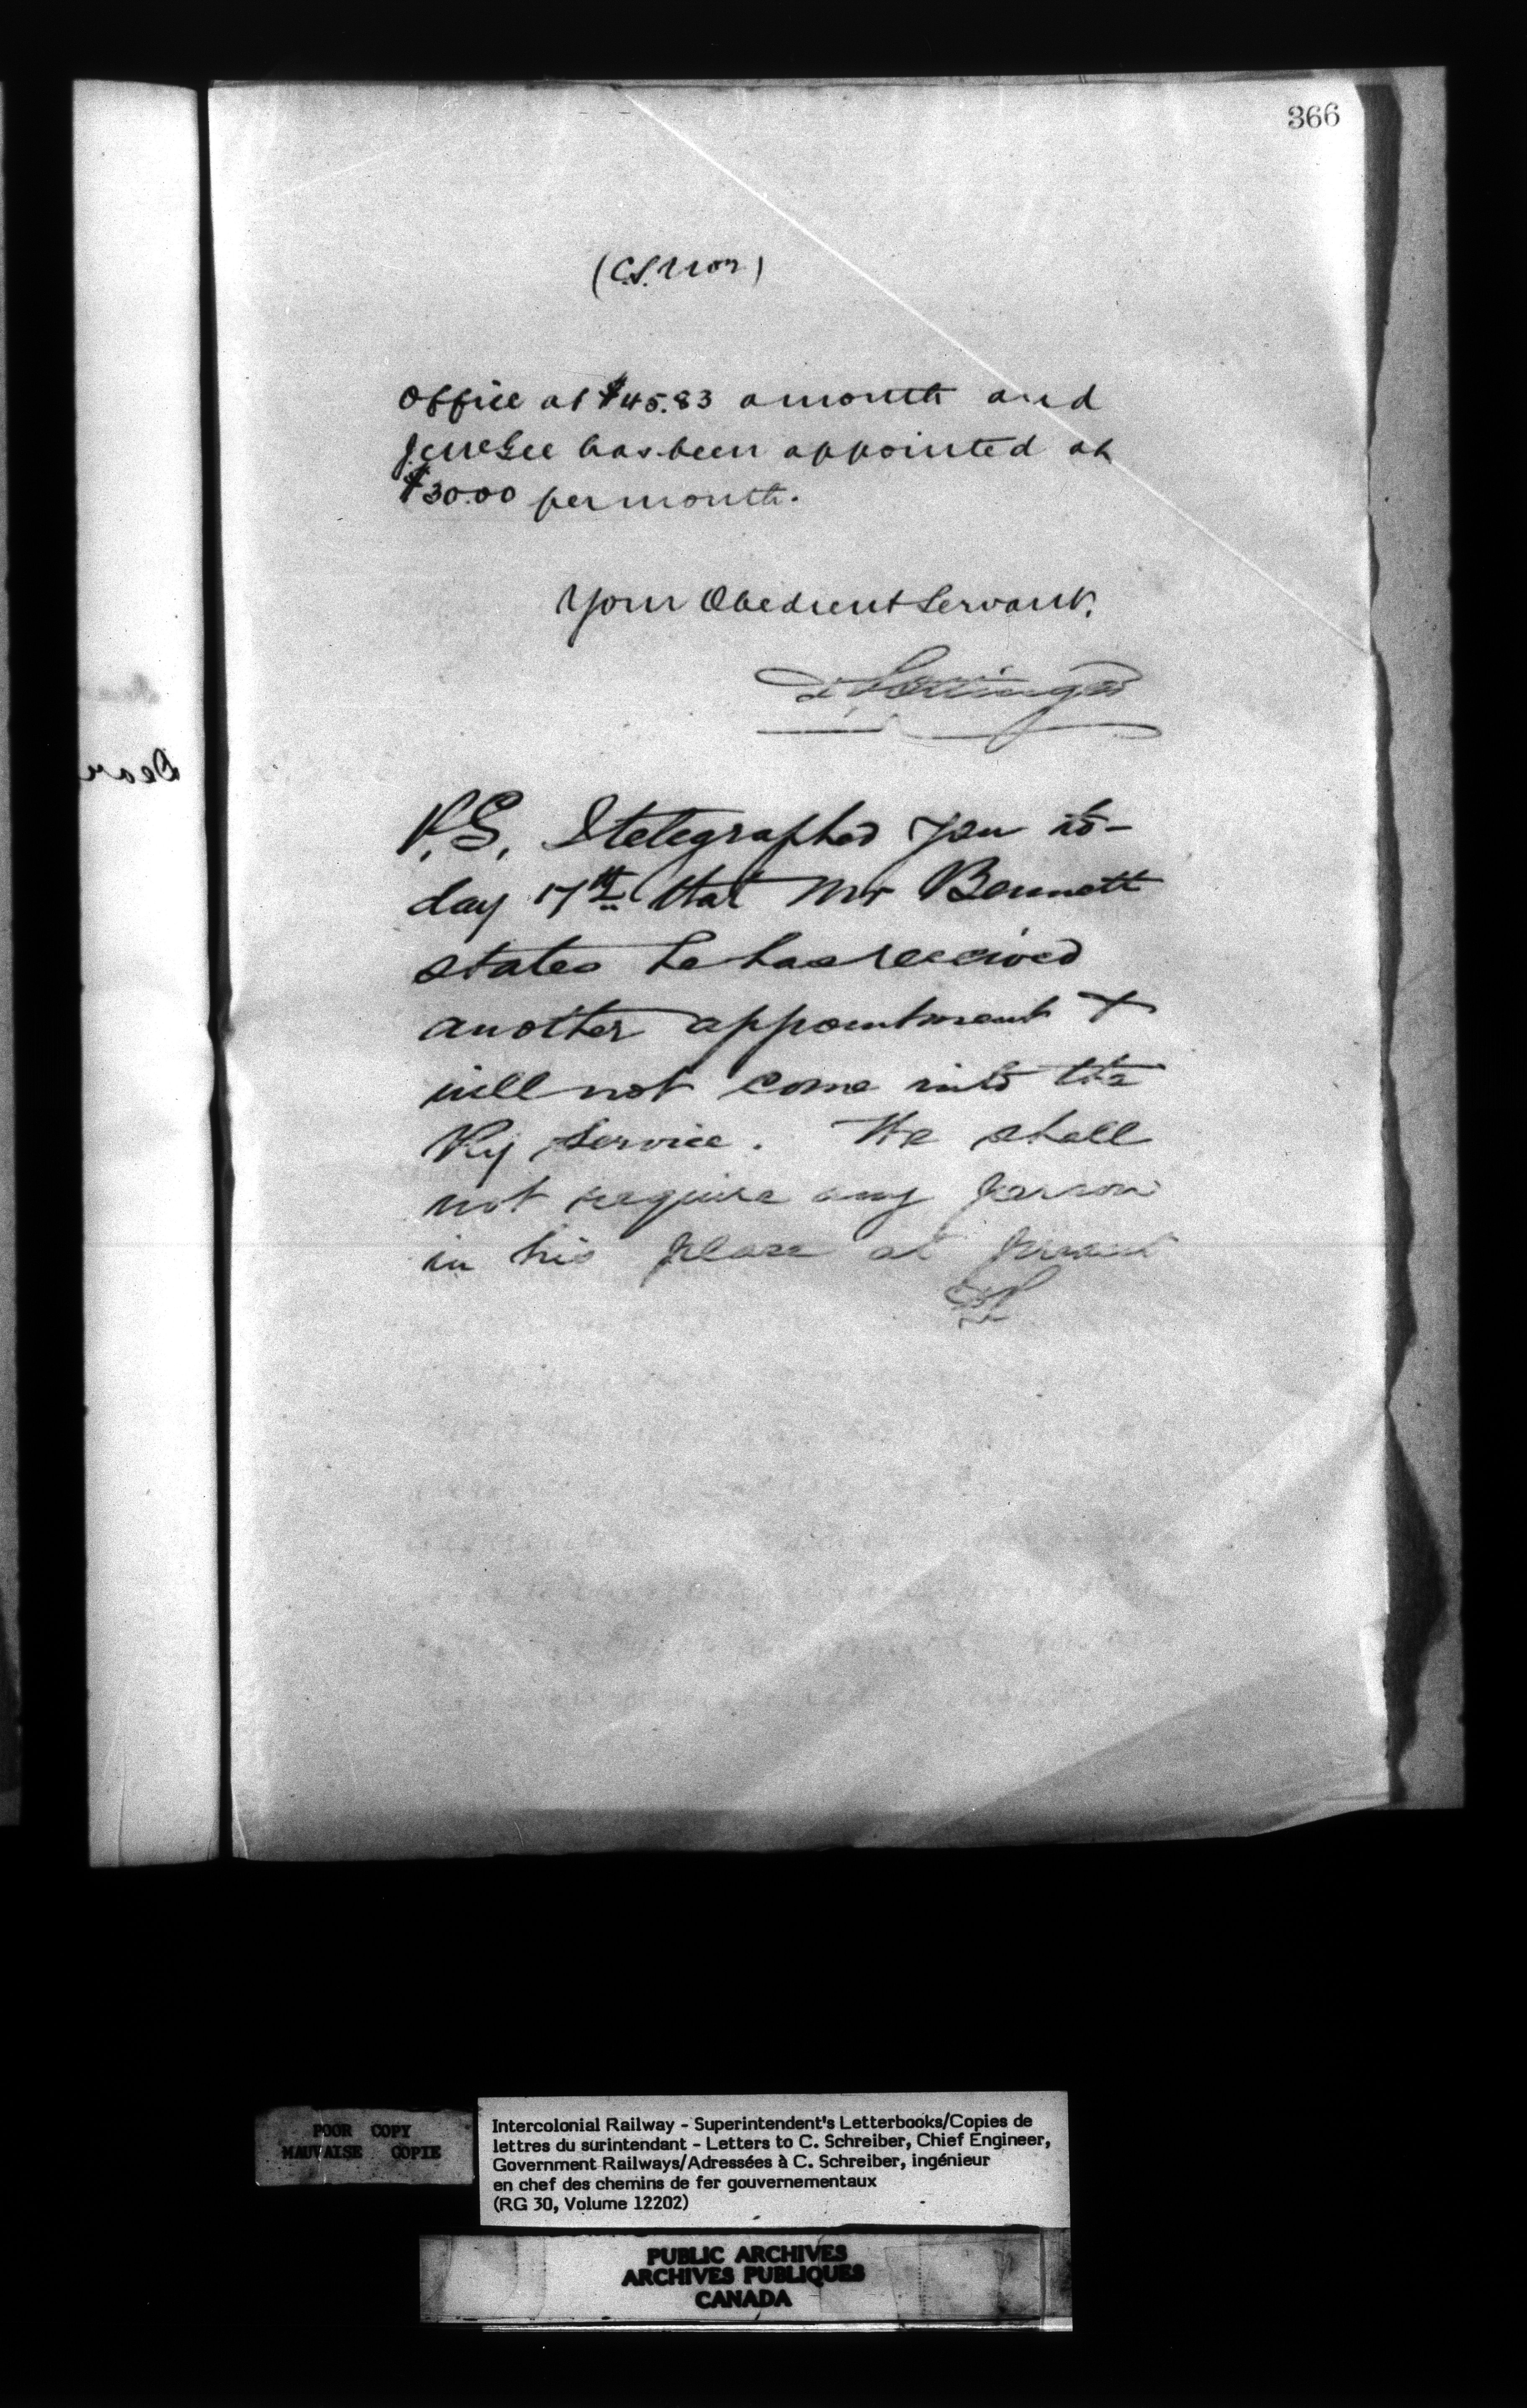 366
(C.S.
Office at $45.83 a month and
has been appointed at
$30.00 per month.
Your Obedient Servant.
D Pottinger
P.S. I telegraphed you to-
day 17th that Mr Bennett
states he has received
another appointment +
will not come into the
Ry Service. We shall
not require any person
in his place at present
DP
Dear
POOR COPY
MAUVAISE COPIE
Intercolonial Railway - Superintendent's Letterbooks/Copies de
lettres du surintendant - Letters to C. Schreiber, Chief Engineer,
Government Railways/Adressées à C. Schreiber, ingénieur
en chef des chemins de fer gouvernementaux
(RG 30, Volume 12202)
PUBLIC ARCHIVES
ARCHIVES PUBLIQUES
CANADA